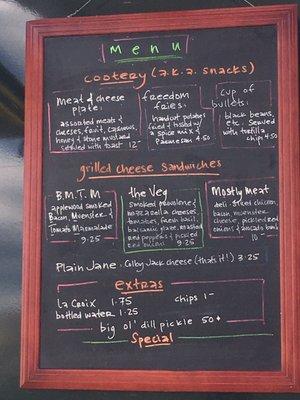 menu
cootery (a.k.a. snacks)
meat & cheese
plate:
assorted meats &
cheeses, fruit, cashews,
honey & stone mustard
served with toast 12
freedom
fries:
handcut potatoes
fried & tossed w/
a spice mix &
Parmesan 4.50
cup of
bullets:
black beans,
etc. Served
with tortilla
chips 4.50
grilled cheese sandwiches
B.M.T.M
applewood smoked
Bacon, Muenster &
Tomato Marmalade
9.25
the Veg
smoked provolone &
mozzarella cheeses,
tomatoes, fresh basil,
balsamic glaze, roasted
red peppers & pickled
red onions 9.25
Mostly meat
deli sliced chicken,
bacon, muenster
cheese, pickled red
onions & avocado bomb
10
Plain Jane: Colby Jack cheese (thats it!) 3.25
extras
La Croix 1.75 chips 1-
bottled water 1.25
big ol' dill pickle 50¢
Special